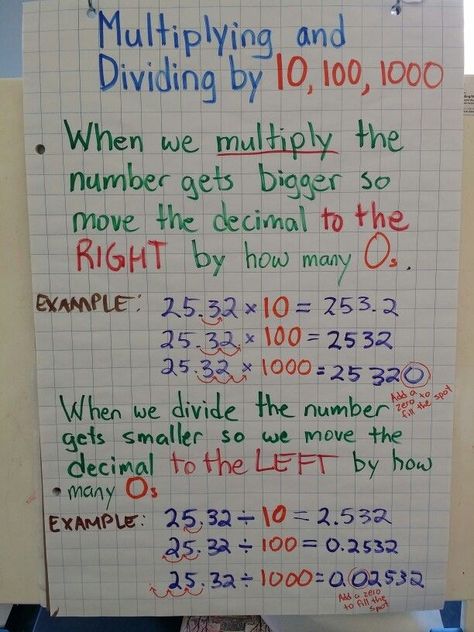 Multiplying and
Dividing by 10, 100, 1000
• When we multiply the
number gets bigger so
move the decimal to the
RIGHT by how many 0s.
EXAMPLE: 25.32 × 10 = 253.2
25.32 × 100 = 2532
25.32 × 1000 = 25320
Add a zero to fill the spot
When we divide the number
gets smaller so we move the
decimal to the LEFT by how
• many 0s
EXAMPLE: 25.32 ÷ 10 = 2.532
25.32 ÷ 100 = 0.2532
25.32 ÷ 1000 = 0.02532
Add a zero
to fill the
spot